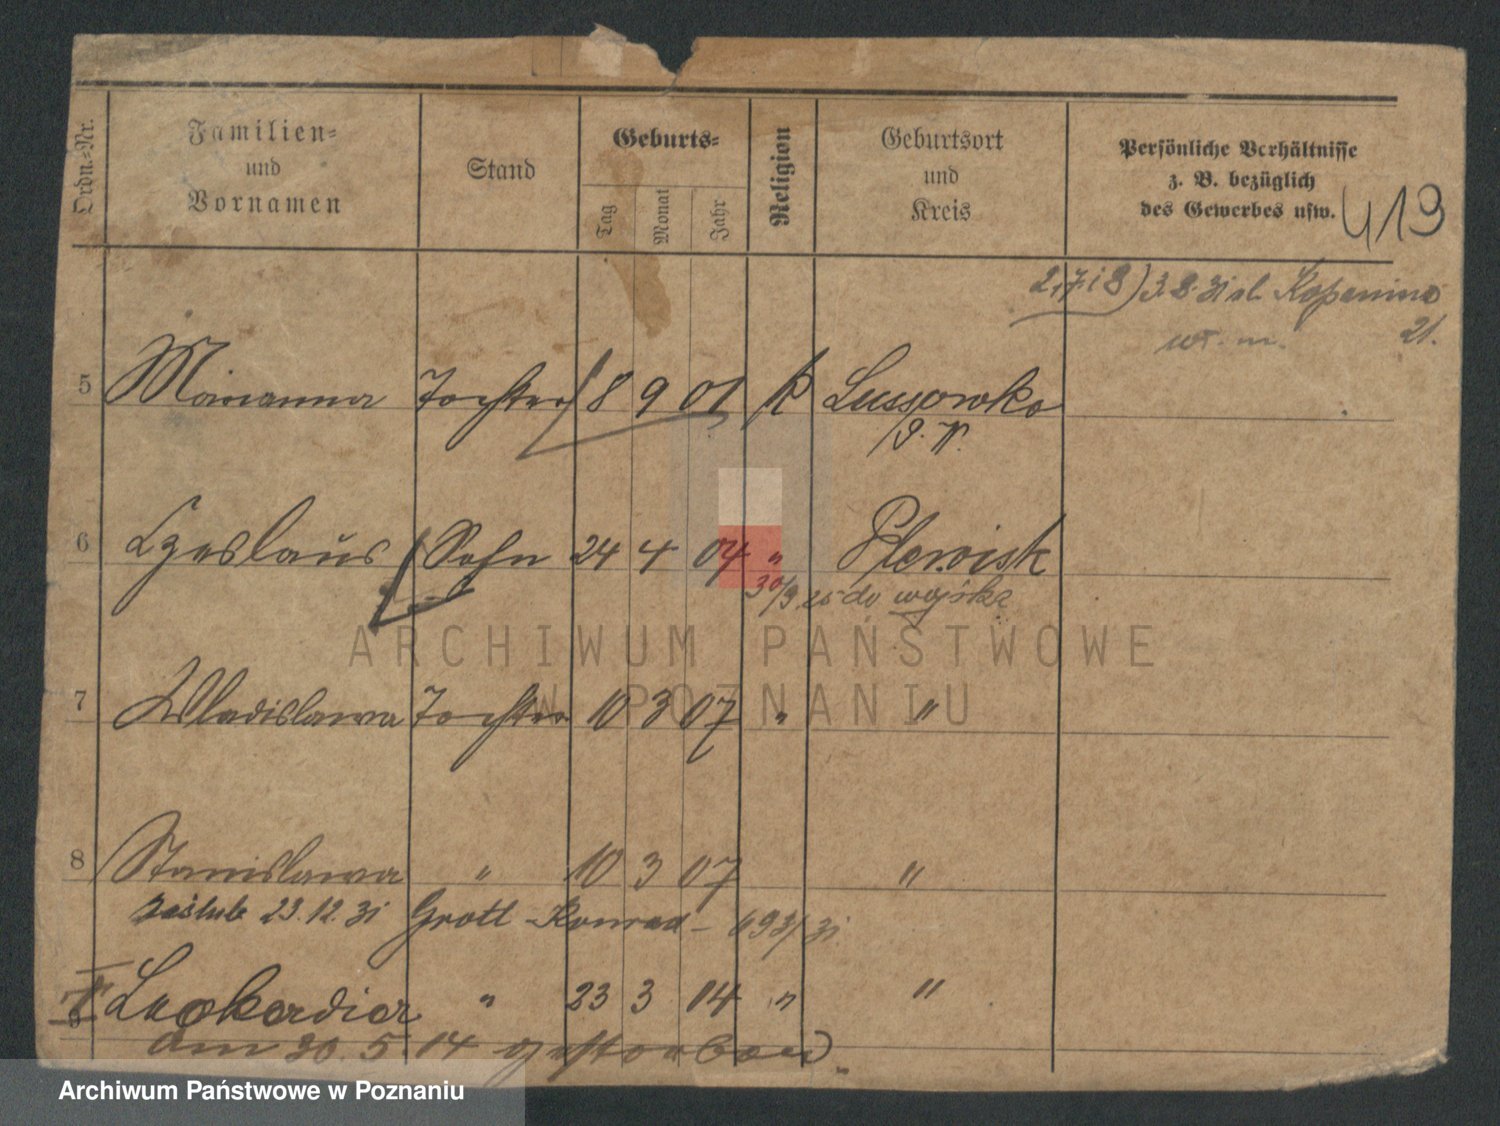 Ordn.=Nr.
Familien=
und
Vornamen
Stand
Geburts=
Tag
Monat
Jahr
Religion
Geburtsort
und
Kreis
Persönliche Verhältnisse
z. B. bezüglich
des Gewerbes usw.
419
2, 7 i 8) 3.8.31 ul. Kopanina
wł. m. 21.
5 Marianna Tochter 8 9 01 K Lussowko
P. W.
6 Czeslaus Sohn 24 4 04 " Plewisk
30/9 25 do wojska
7 Wladislawa Tochter 10 3 07 " "
8 Stanislawa " 10 3 07 "
zaślub 23.12.31 Grott - Konrad - 693/31
9 Leokardia " 23 3 14 " "
am 30. 5 14 gestorben.
ARCHIWUM PAŃSTWOWE
W POZNANIU
Archiwum Państwowe w Poznaniu